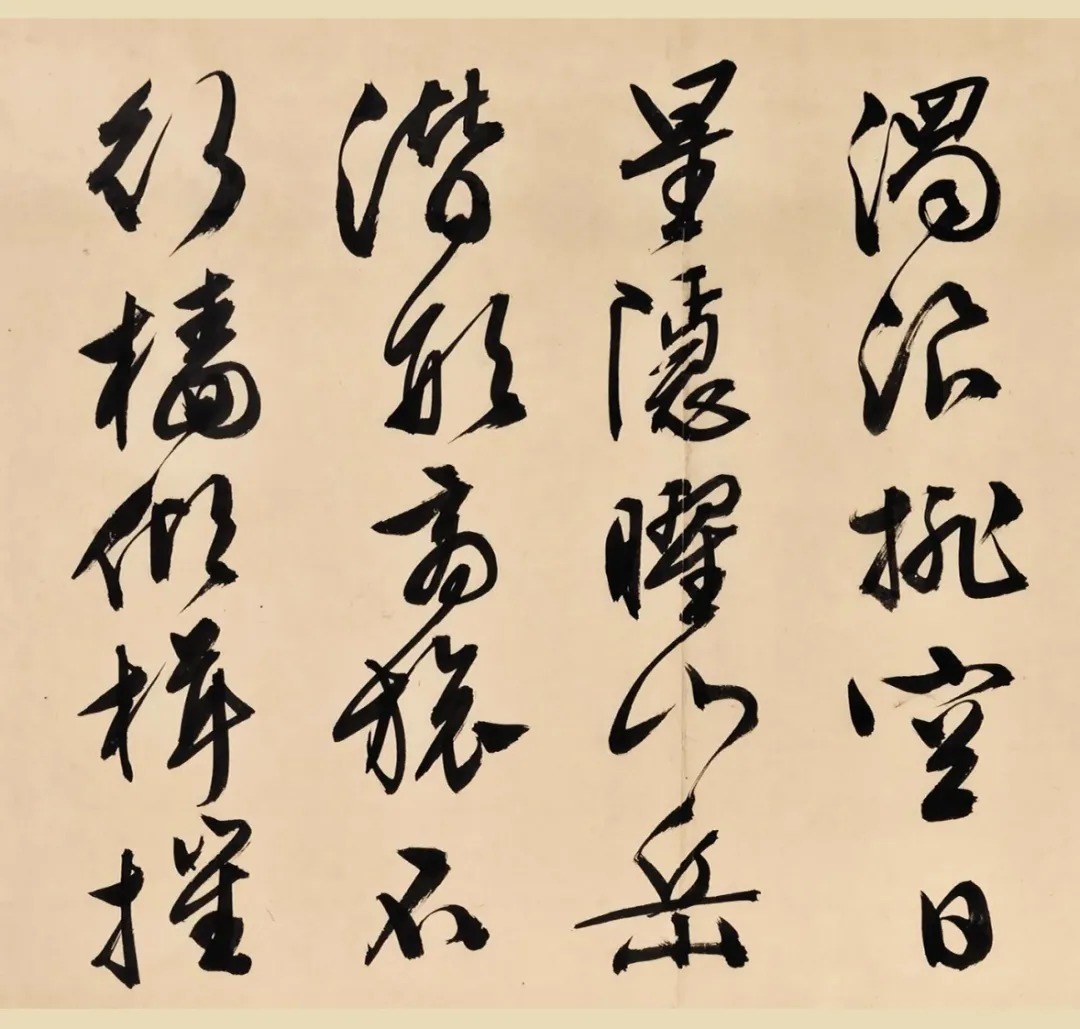 濁浪排空日
星隱曜山岳
潛形商旅不
行檣傾楫摧